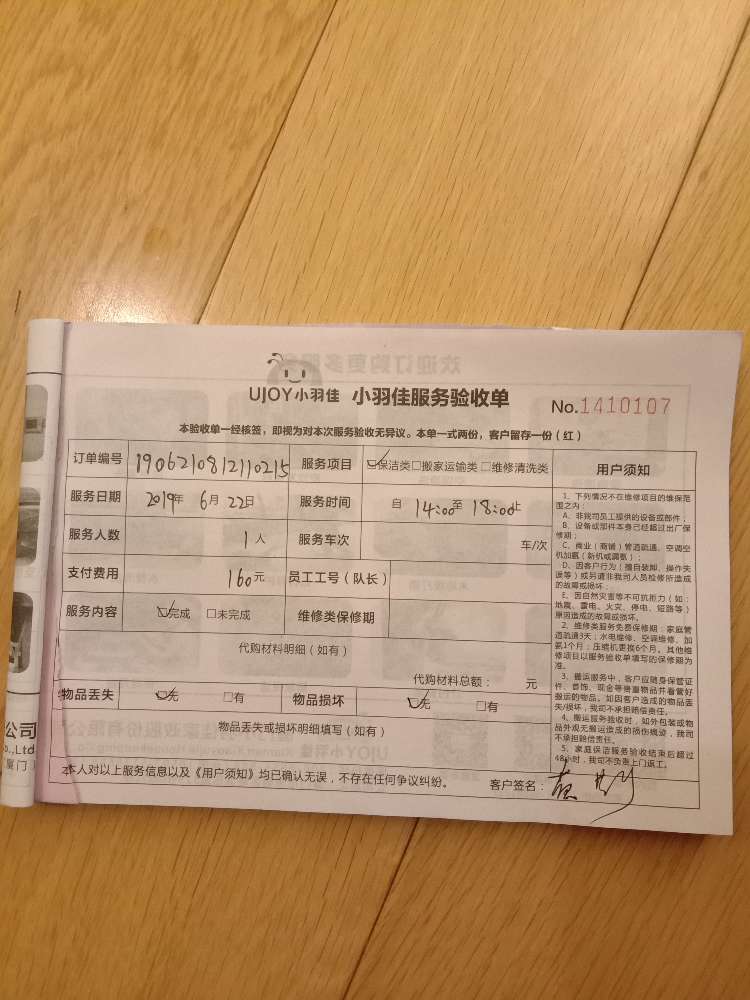 UJOY小羽佳 小羽佳服务验收单 No.1410107
本验收单一经核签，即视为对本次服务验收无异议。本单一式两份，客户留存一份（红）
订单编号 1906210812110215 服务项目 ☑保洁类□搬家运输类□维修清洗类
服务日期 2019年 6月 22日 服务时间 自 14:00至 18:00止
服务人数 1人 服务车次 车/次
支付费用 160元 员工工号（队长）
服务内容 ☑完成 □未完成 维修类保修期
代购材料明细（如有）
代购材料总额： 元
物品丢失 ☑无 □有 物品损坏 ☑无 □有
物品丢失或损坏明细填写（如有）
本人对以上服务信息以及《用户须知》均已确认无误，不存在任何争议纠纷。 客户签名：
用户须知
1、下列情况不在维修项目的维保范
围之内：
A、非我司员工提供的设备或部件；
B、设备或部件本身已经超过出厂保
修期；
C、商业（商铺）管道疏通、空调空
机加氨（新机或漏氨）；
D、因客户行为（擅自装卸、操作失
误等）或另请非我司人员检修所造成
的故障或损坏；
E、因自然灾害等不可抗拒力（如：
地震、雷电、火灾、停电、短路等）
原因造成的故障或损坏。
2、维修类服务免费保修期：家庭管
道疏通3天；水电维修、空调维修、加
氨1个月；压缩机更换6个月。其他维
修项目以服务验收单填写的保修期为
准。
3、搬运服务中，客户应随身保管证
件、首饰、现金等贵重物品并看管好
搬运的物品。如因客户造成的物品丢
失/损坏，我司不承担赔偿责任。
4、搬运服务验收时，如外包装或物
品外观无搬运造成的损伤痕迹，我司
不承担赔偿责任。
5、家庭保洁服务验收结束后超过
48小时，我司不负责上门返工。
公司
o.,Ltd
厦门